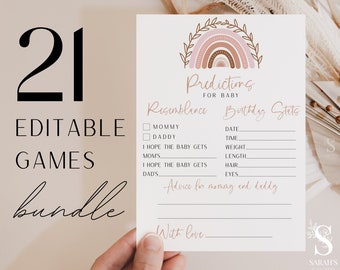 21
EDITABLE
GAMES
bundle
Predictions
FOR BABY
Resemblance
MOMMY
DADDY
I HOPE THE BABY GETS
MOMS
I HOPE THE BABY GETS
DADS
Birthday Stats
DATE:
TIME:
WEIGHT:
LENGTH:
HAIR:
EYES:
Advice for mommy and daddy
With love
S
SARAH'S